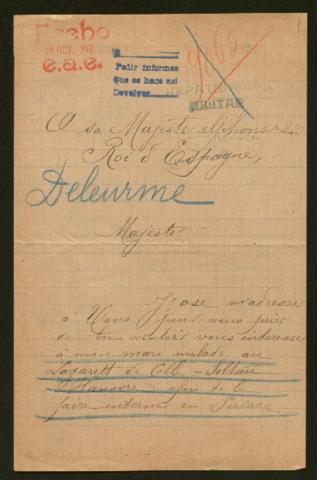 Fecho
OCT. 1917
e.a.e.
Pedir informes
Que se hace asi
Devolver
9665
MILITAR
A sa Majesté Alphonse XIII
Roi d'Espagne,
Deleurme
Majesté
J'ose m'adresse
à Vous pour vous prier
de bien vouloir vous interesse
à mon mari malade au
Lazarett de Celle-Soltau
Hanovre afin de le
faire interner en Suisse.